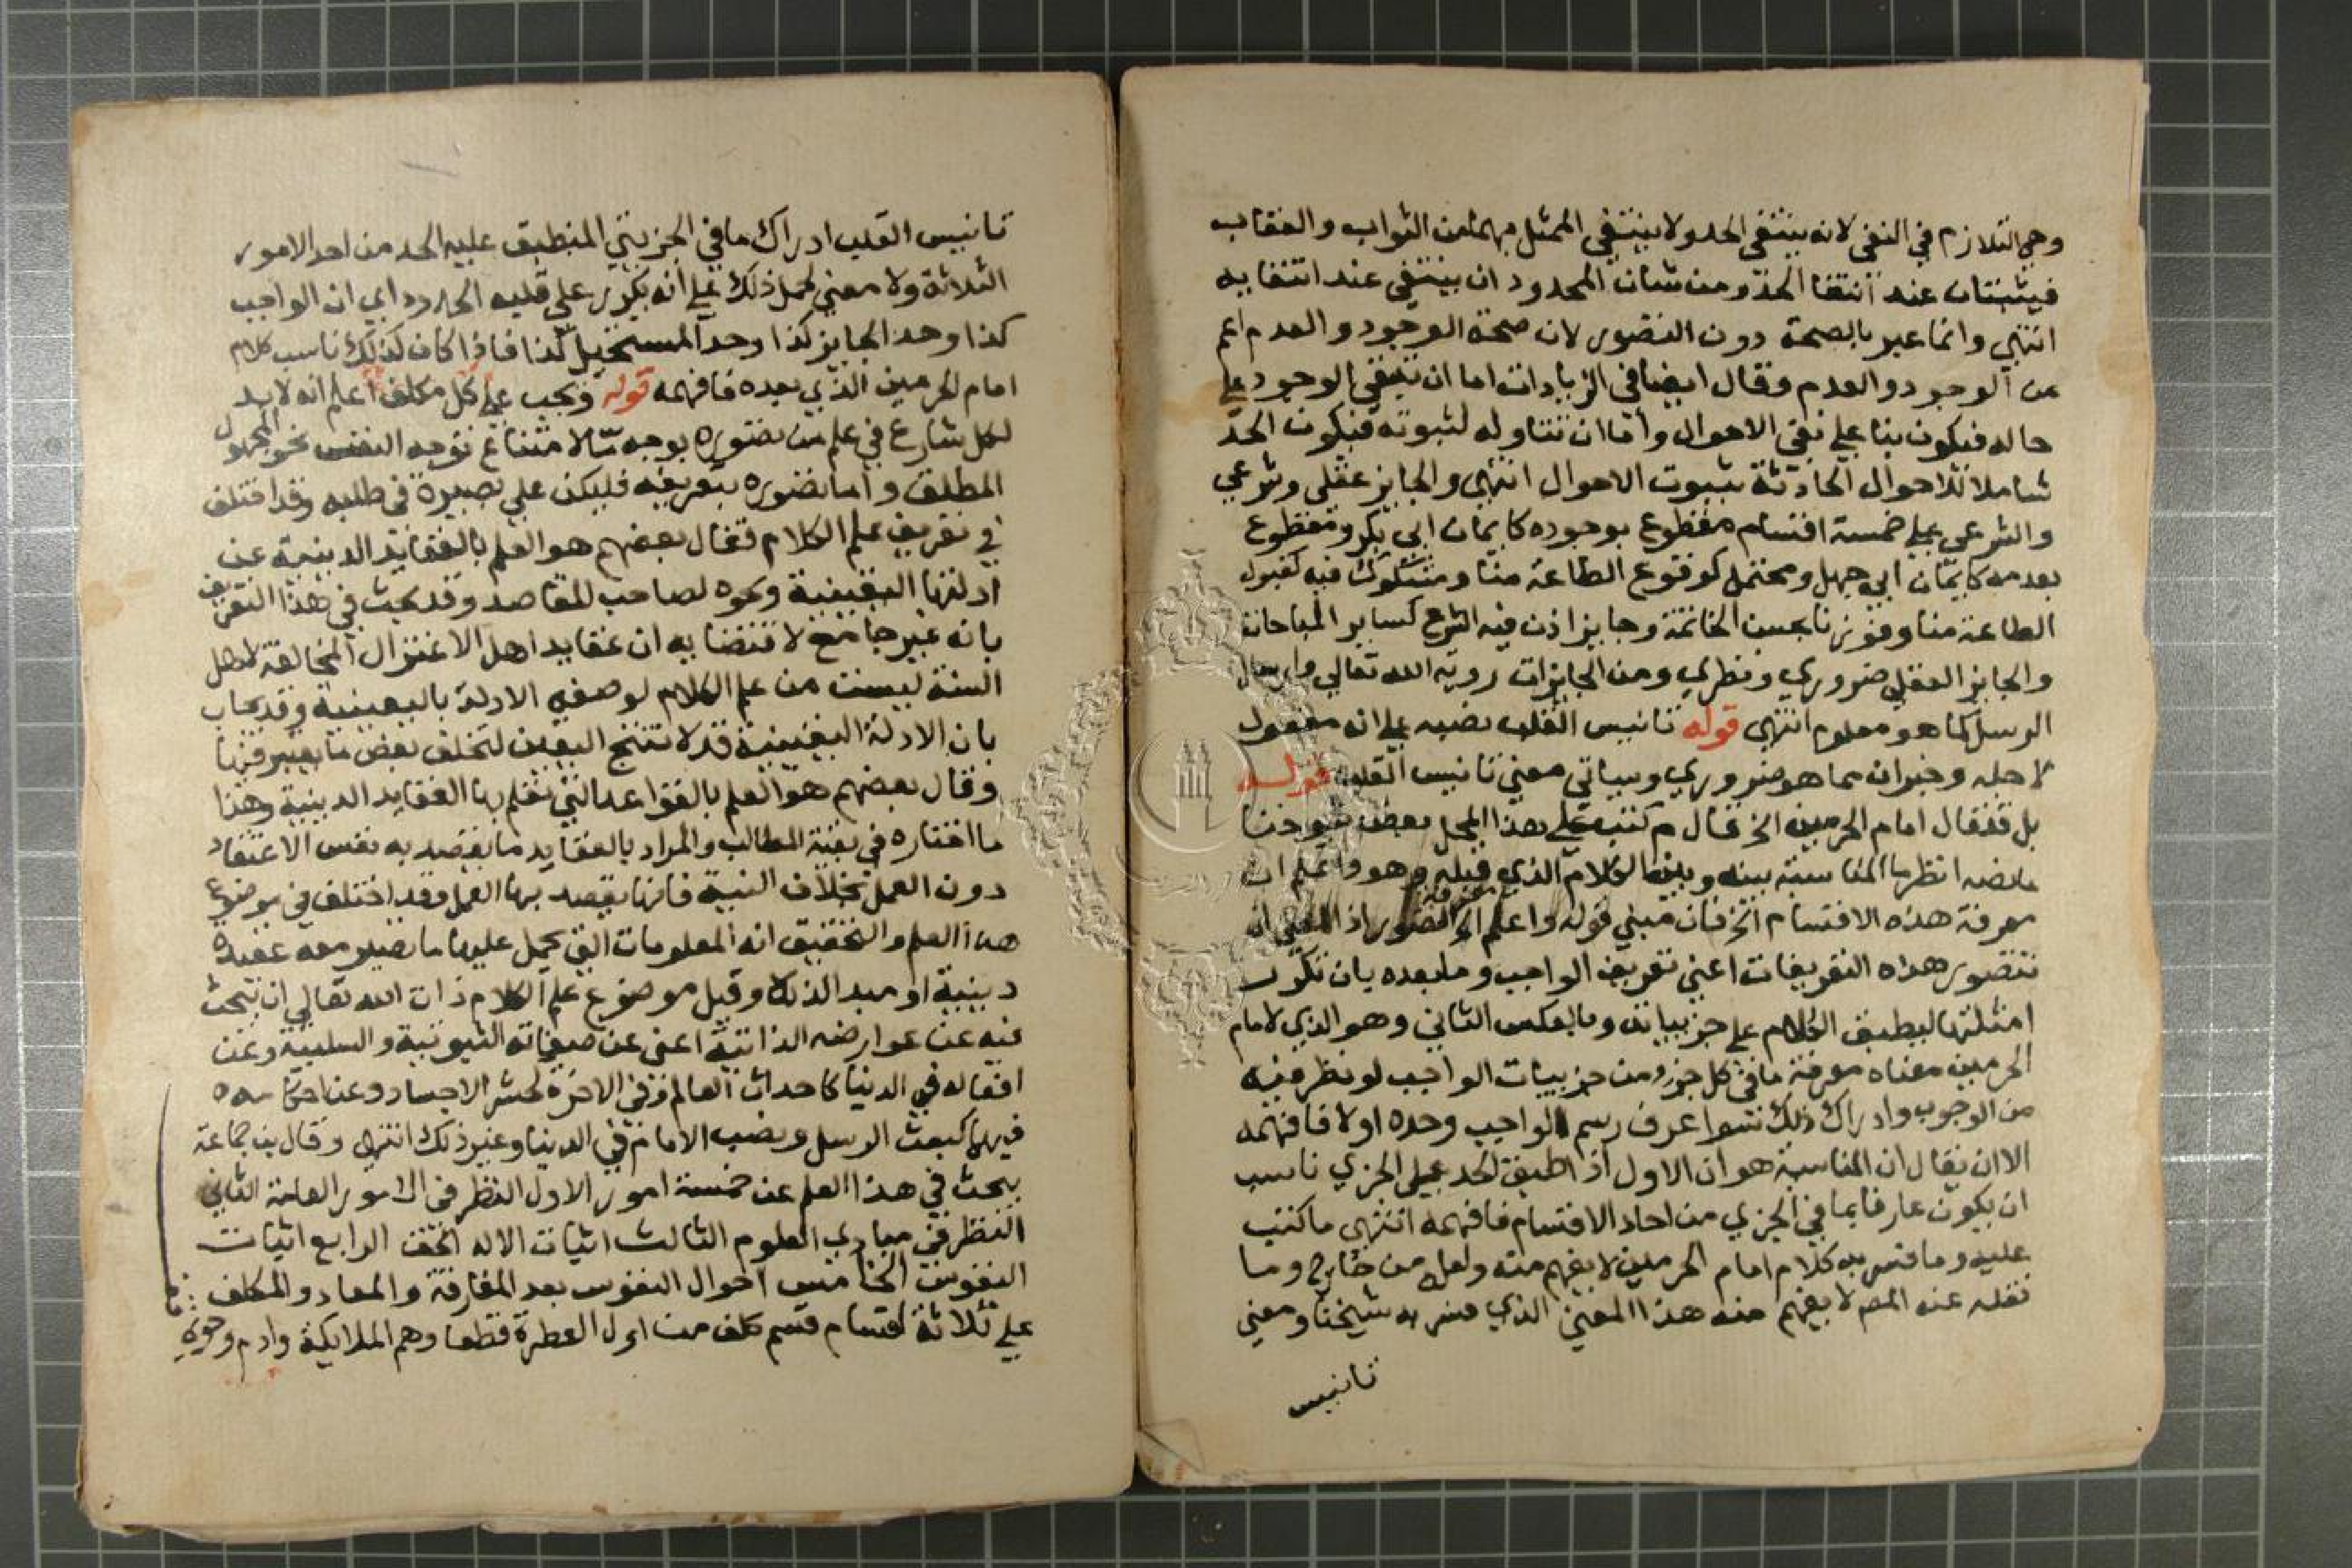 وهي التلازم في النفي لانه ينتفي الحد ولا ينتفي الممثل بهما من الثواب والعقاب
فيثبتان عند انتفا الحد ومن شان المحدود ان ينتفي عند انتفايه
انتهي وانما عبر بالصحة دون التصور لان صحة الوجود والعدم اعم
من الوجود والعدم وقال ايضا في الزيادات اما ان ينفي الوجود على
حاله فيكون بنا علي نفي الاحوال واما ان تتناوله لثبوته فيكون الحد
شاملا للاحوال الحادثة بثبوت الاحوال انتهي والجايز عقلي وشرعي
والشرعي على خمسة اقسام مقطوع بوجوده كايمان ابي بكر ومقطوع
بعدمه كايمان ابي جهل ومحتمل كوقوع الطاعة منا ومشكوك فيه كقبول
الطاعة منا وفوزنا بحسن الخاتمة وجايز اذن فيه الشرع كساير المباحات
والجايز العقلي ضروري ونظري ومن الجايزات روية الله تعالي وارسال
الرسل كما هو معلوم انتهي قوله تانيس القلب نصبه على انه مفعول
لاجله وخبر ان مما هو ضروري وسياتي معني تانيس القلب قوله
بل قد قال امام الحرمين الخ قال م كتب علي هذا المحل بعض شيوخنا
ما نصه انظر ما المناسبة بينه وبين الكلام الذي قبله وهو واعلم ان
معرفة هذه الاقسام الخ فان مبني قوله واعلم الخ معرفة التصور اذ المعني انه
تتصور هذه التعريفات اعني تعريف الواجب وما بعده بان تكرر
امثلتها ليطبق الكلام علي جزيياته وبالعكس الثاني وهو الذي لامام
الحرمين معناه معرفة ما في كل جزء من جزييات الواجب لو نظر فيه
من الوجوب وادراك ذلك سوا عرف رسم الواجب وحده اولا فافهمه
الا ان يقال ان المناسبة هو ان الاول اذا طبق الحد على الجزي ناسب
ان يكون عارفا بما في الجزي من احاد الاقسام فافهمه انتهي ما كتب
عليه وما فسر به كلام امام الحرمين لا يفهم منه ولعل من خارج وما
نقله عنه المص لا يفهم منه هذا المعني الذي فسر به شيخنا ومعني
تانيس
تانيس القلب ادراك ما في الجزيتي المنطبق عليه الحد من احد الامور
الثلاثة ولا معني لحمل ذلك على انه يكرر علي قلبه الحدود اي ان الواجب
كذا وحد الجايز كذا وحد المستحيل كذا فاذا كان كذلك ناسب كلام
امام الحرمين الذي بعده فافهمه قوله ويجب على كل مكلف اعلم انه لا بد
لكل شارع في علم من تصوره بوجه ما لامتناع توجه النفس نحو المجهول
المطلق واما تصوره بتعريفه فليكن علي بصيرة في طلبه وقد اختلف
في تعريف علم الكلام فقال بعضهم هو العلم بالعقايد الدينية عن
ادلتها اليقينية ونحوه لصاحب المقاصد وقد بحث في هذا التعريف
بانه غير جامع لاقتضايه ان عقايد اهل الاعتزال المخالفة لاهل
السنة ليست من علم الكلام لوصفه الادلة باليقينية وقد يجاب
بان الادلة اليقينية قد لا تنتج اليقين لتخلف بعض ما يعتبر فيها
وقال بعضهم هو العلم بالقواعد التي تعلم بها العقايد الدينية وهذا
ما اختاره في بغية الطالب والمراد بالعقايد ما يقصد به نفس الاعتقاد
دون العمل بخلاف النية فانها يقصد بها العمل وقد اختلف في موضوع
هذا العلم والتحقيق انه المعلومات التي يحمل عليها ما تصير معه عقيدة
دينية او مبدا لذلك وقيل موضوع علم الكلام ذات الله تعالي ان يبحث
فيه عن عوارضه الذاتية اعني عن صفاته الثبوتية والسلبية وعن
افعاله في الدنيا كاحداث العالم وفي الاخرة كحشر الاجساد وعن احكامه
فيهما كبعث الرسل ونصب الامام في الدنيا وغير ذلك انتهي وقال بن جماعة
يبحث في هذا العلم عن خمسة امور الاول النظر في الامور العامة الثاني
النظر في مبادي العلوم الثالث اثبات الاله الحق الرابع اثبات
النفوس الخامس احوال النفوس بعد المفارقة والمعاد والمكلف
علي ثلاثة اقسام قسم كلف من اول الفطرة قطعا وهم الملايكة وادم وحوي